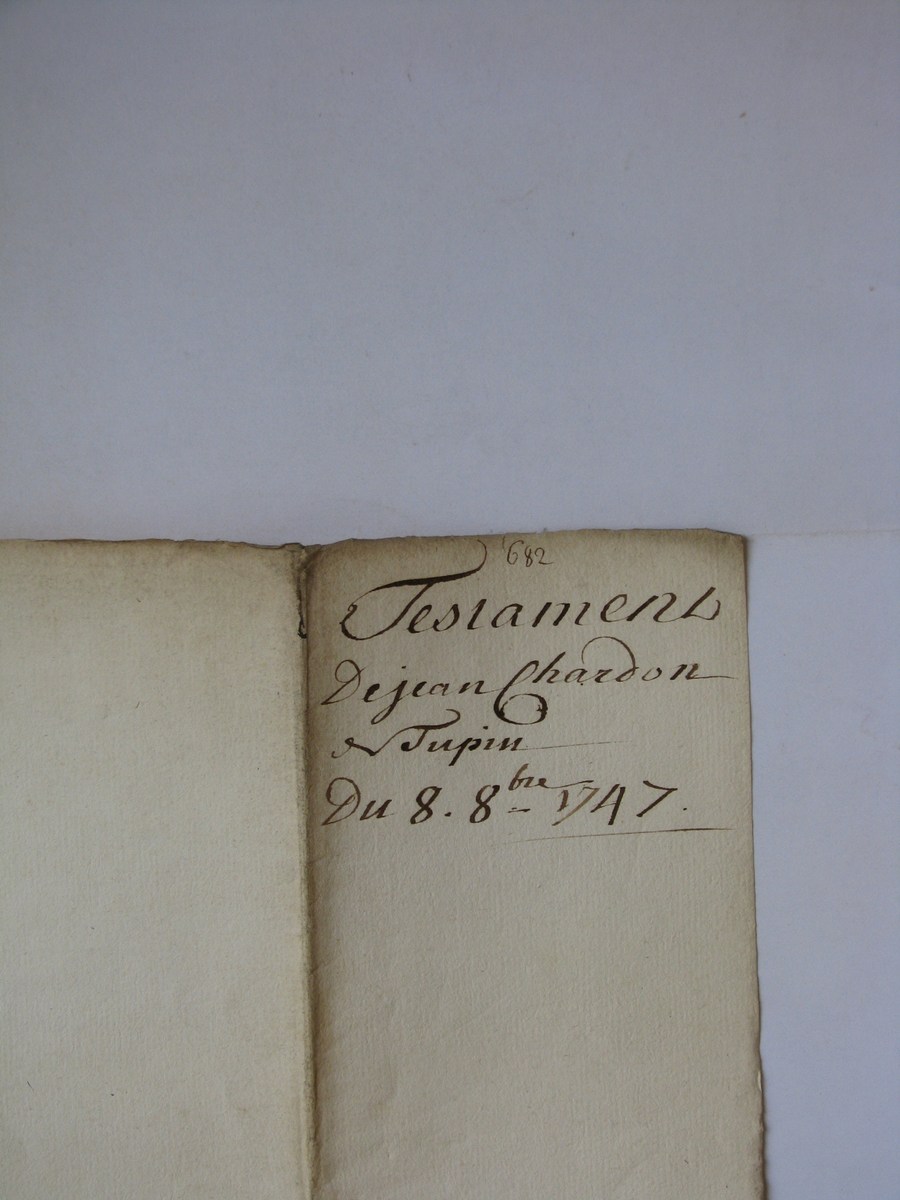 682
Testament
De jean Chardon
de Tupin
Du 8. 8bre 1747.